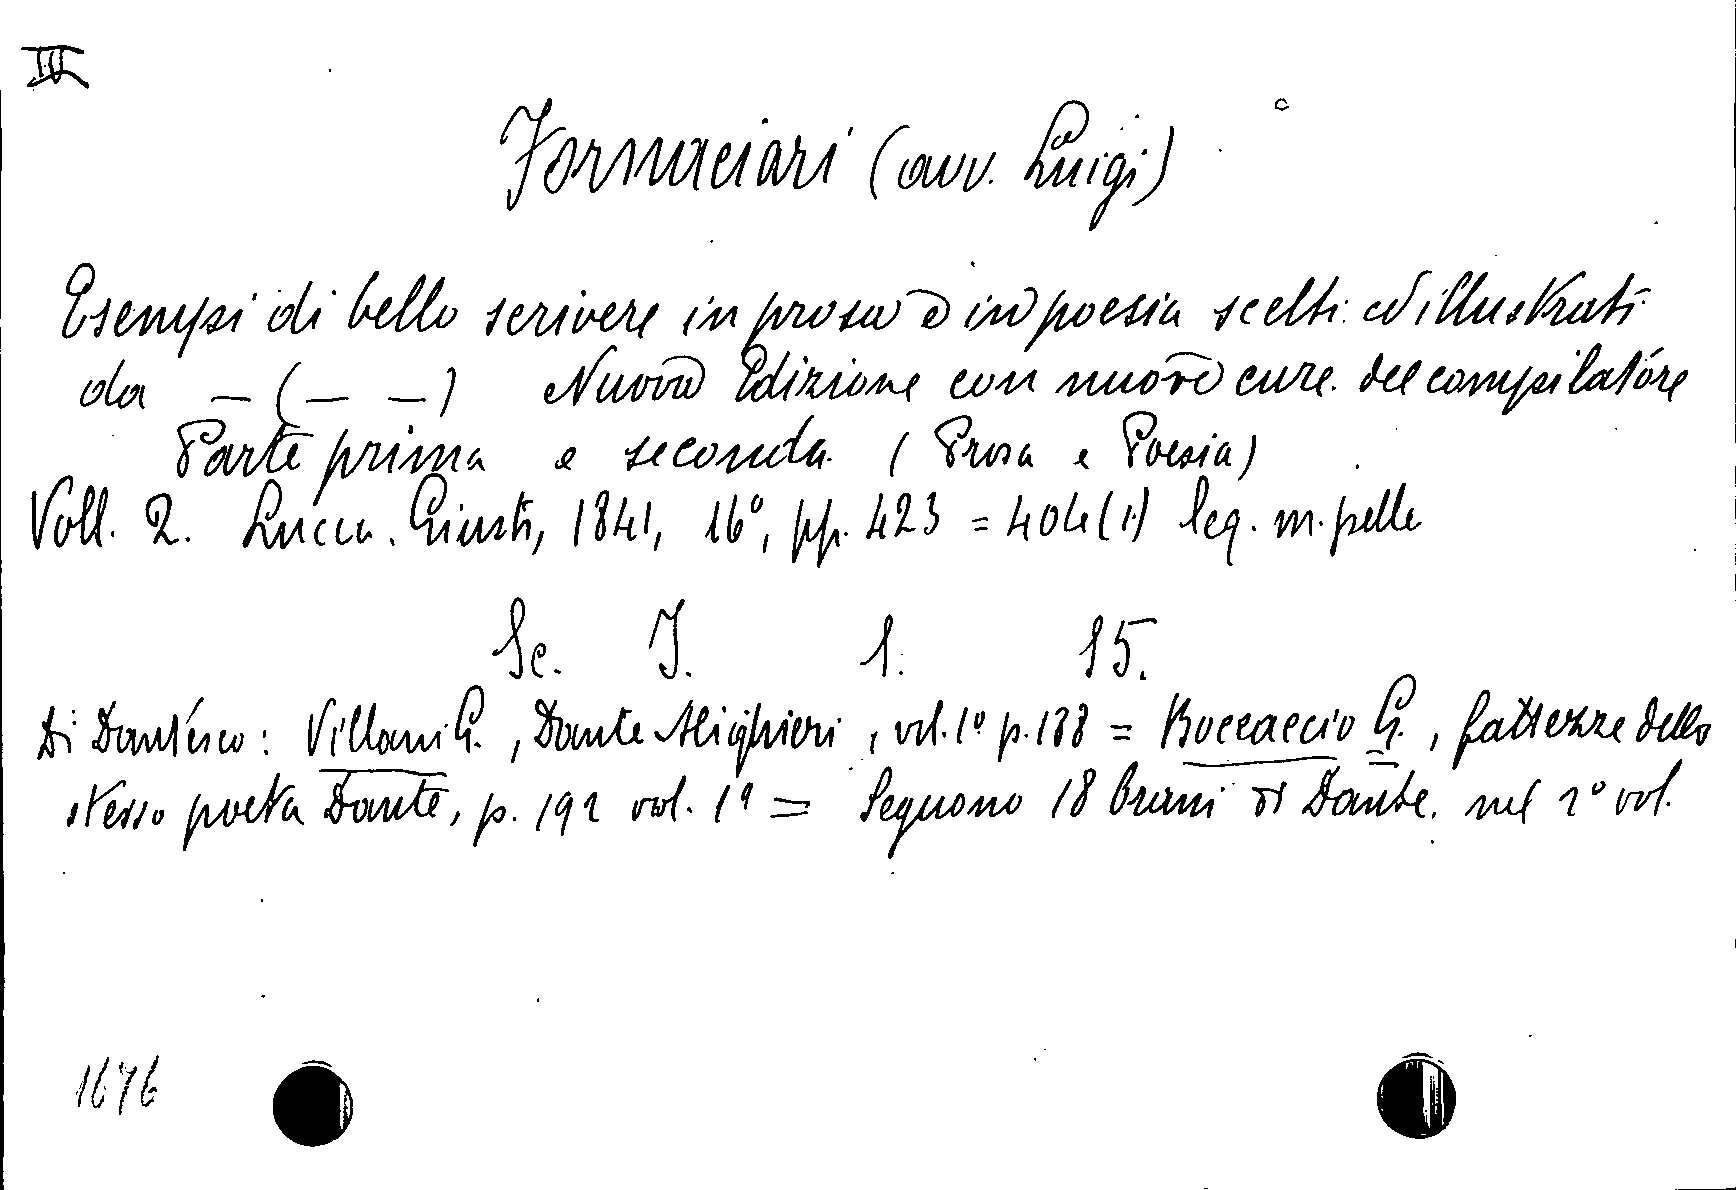 III
Fornaciari (avv. Luigi)
Esempi di bello scrivere in prosa e in poesia scelti ed illustrati
da — (— —) Nuova Edizione con nuove cure del compilatore
Parte prima e seconda (Prosa e Poesia)
Voll. 2. Lucca. Giusti, 1841, 16°, pp. 423 = 404 (1) leg. m. pelle
Sc. I. 1. 15.
Di Dantesco: Villani G., Dante Alighieri, vol. 1° p. 188 = Boccaccio G., fattezze dello
stesso poeta Dante, p. 192 vol. 1° = Seguono 18 brani di Dante. nel 2° vol.
1676